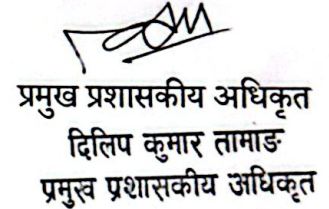 प्रमुख प्रशासकीय अधिकृत
दिलिप कुमार तामाङ
प्रमुख प्रशासकीय अधिकृत